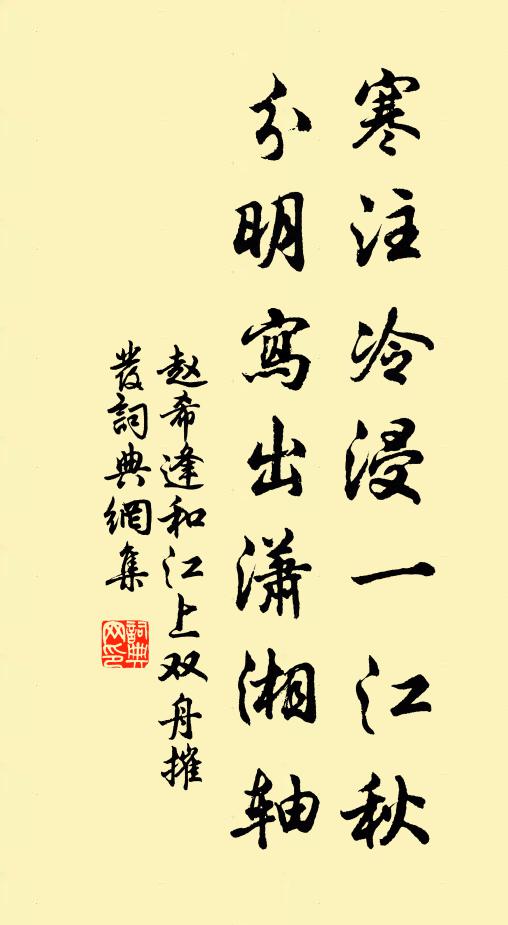 寒注冷浸一江秋
分明寫出潇湘轴
赵希逢和江上双舟摧
發詞典網集
詞典
网印